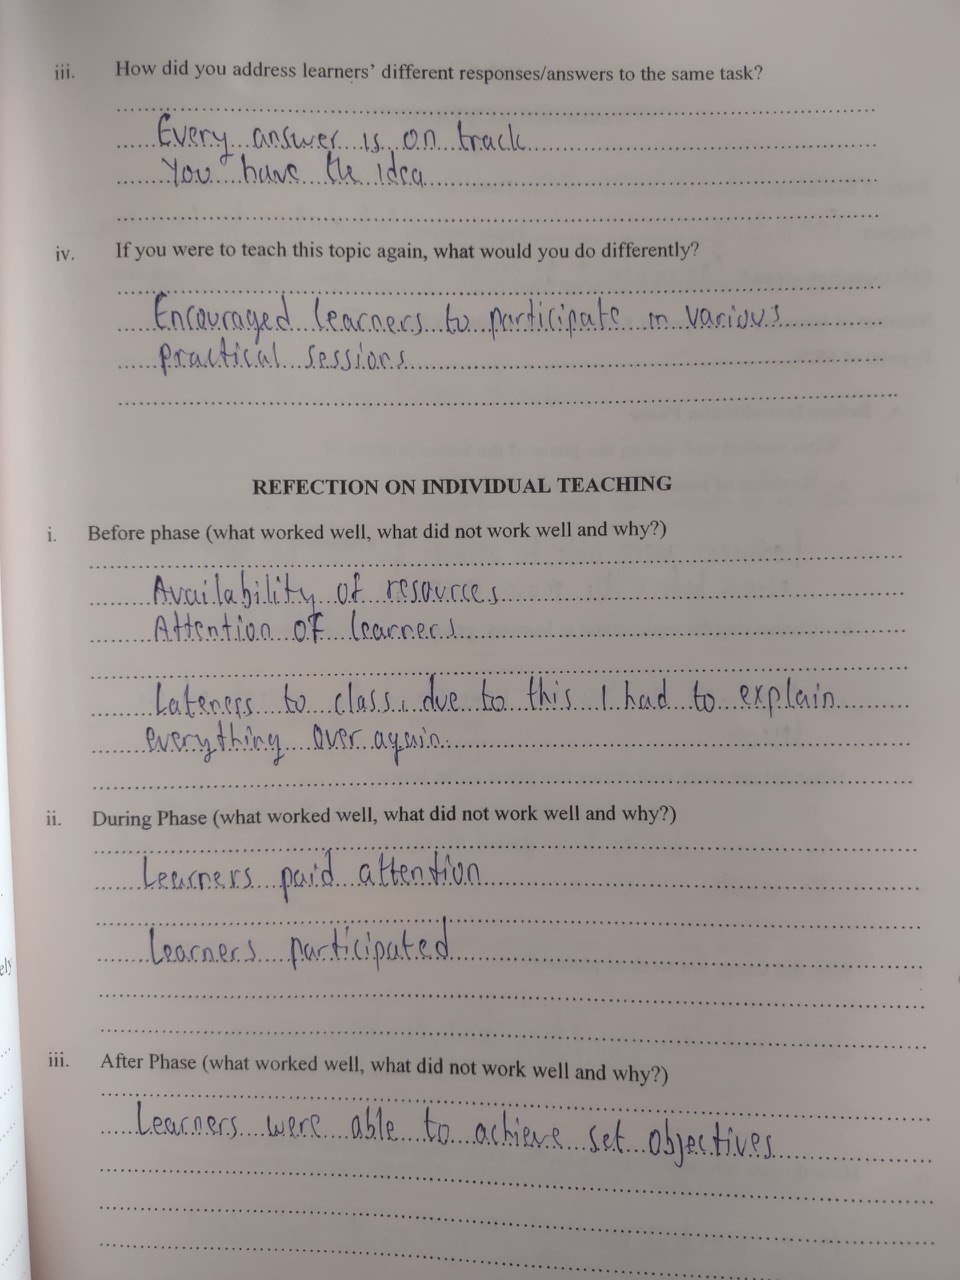 iii. How did you address learners' different responses/answers to the same task?
Every answer is on track
You have the idea
iv. If you were to teach this topic again, what would you do differently?
Encouraged learners to participate in various
practical sessions
REFECTION ON INDIVIDUAL TEACHING
i. Before phase (what worked well, what did not work well and why?)
Availability of resources
Attention of learners
Lateness to class, due to this I had to explain
everything over again.
ii. During Phase (what worked well, what did not work well and why?)
Learners paid attention
Learners participated
ely
iii. After Phase (what worked well, what did not work well and why?)
Learners were able to achieve set objectives